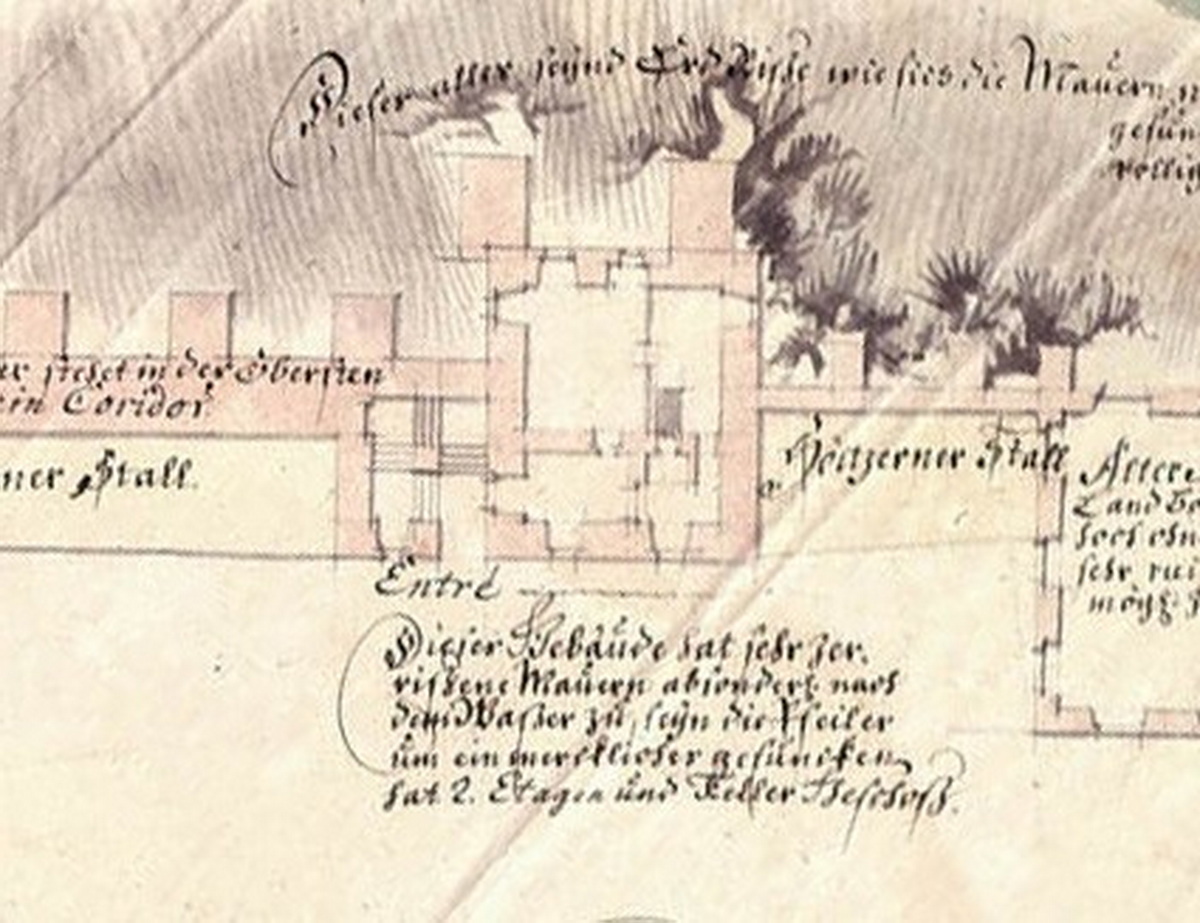 Dieser aller seynd Erd Risse wie sies die Mauern
gesun
völlig
er stehet in der Obersten
ein Coridor
ner Stall.
Höltzerner Stall
Alter
Land
sehr rui
Entré
Dieser Gebäude hat sehr zer-
rissene Mauern absonderl: nach
dem Wasser zu, seyn die Pfeiler
üm ein mercklicher gesuncken
hat 2. Etagen und Keller Geschoss.